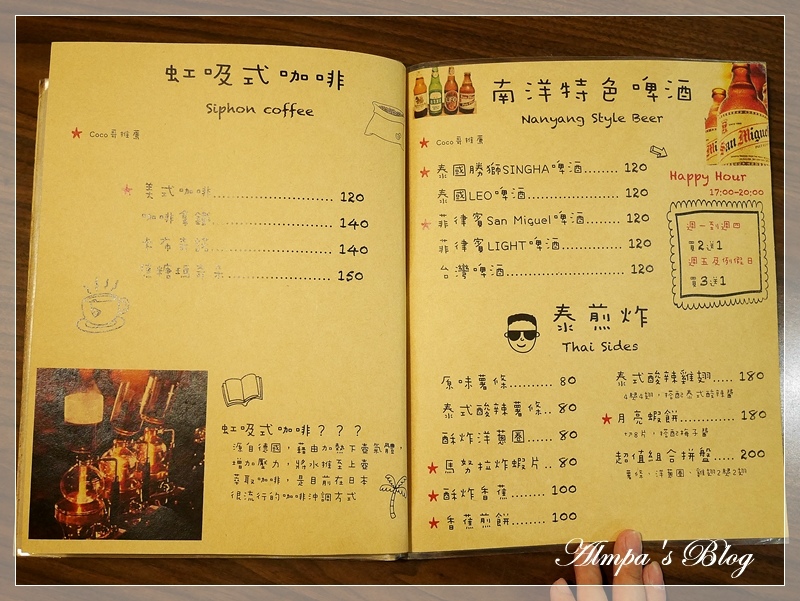 虹吸式咖啡
Siphon coffee
★ Coco哥推薦
★ 美式咖啡 120
咖啡拿鐵 140
卡布奇諾 140
焦糖瑪奇朵 150
虹吸式咖啡???
源自德國,藉由加熱下壺氣體,
增加壓力,將水推至上壺
萃取咖啡,是目前在日本
很流行的咖啡沖調方式
南洋特色啤酒
Nanyang Style Beer
★ Coco哥推薦
★ 泰國勝獅SINGHA啤酒........ 120
泰國LEO啤酒 120
★ 菲律賓San Miguel啤酒........ 120
菲律賓LIGHT啤酒 120
台灣啤酒 120
San Miguel
Happy Hour
17:00-20:00
週一到週四
買2送1
週五及例假日
買3送1
泰煎炸
Thai Sides
原味薯條 80
泰式酸辣薯條.. 80
酥炸洋蔥圈 80
★ 馬努拉炸蝦片.. 80
★ 酥炸香蕉 100
★ 香蕉煎餅 100
泰式酸辣雞翅..... 180
4腿4翅,搭配泰式酸辣醬
★ 月亮蝦餅 180
切8片,搭配梅子醬
超值組合拼盤..... 200
薯條,洋蔥圈,雞翅2腿2翅
Almpa's Blog